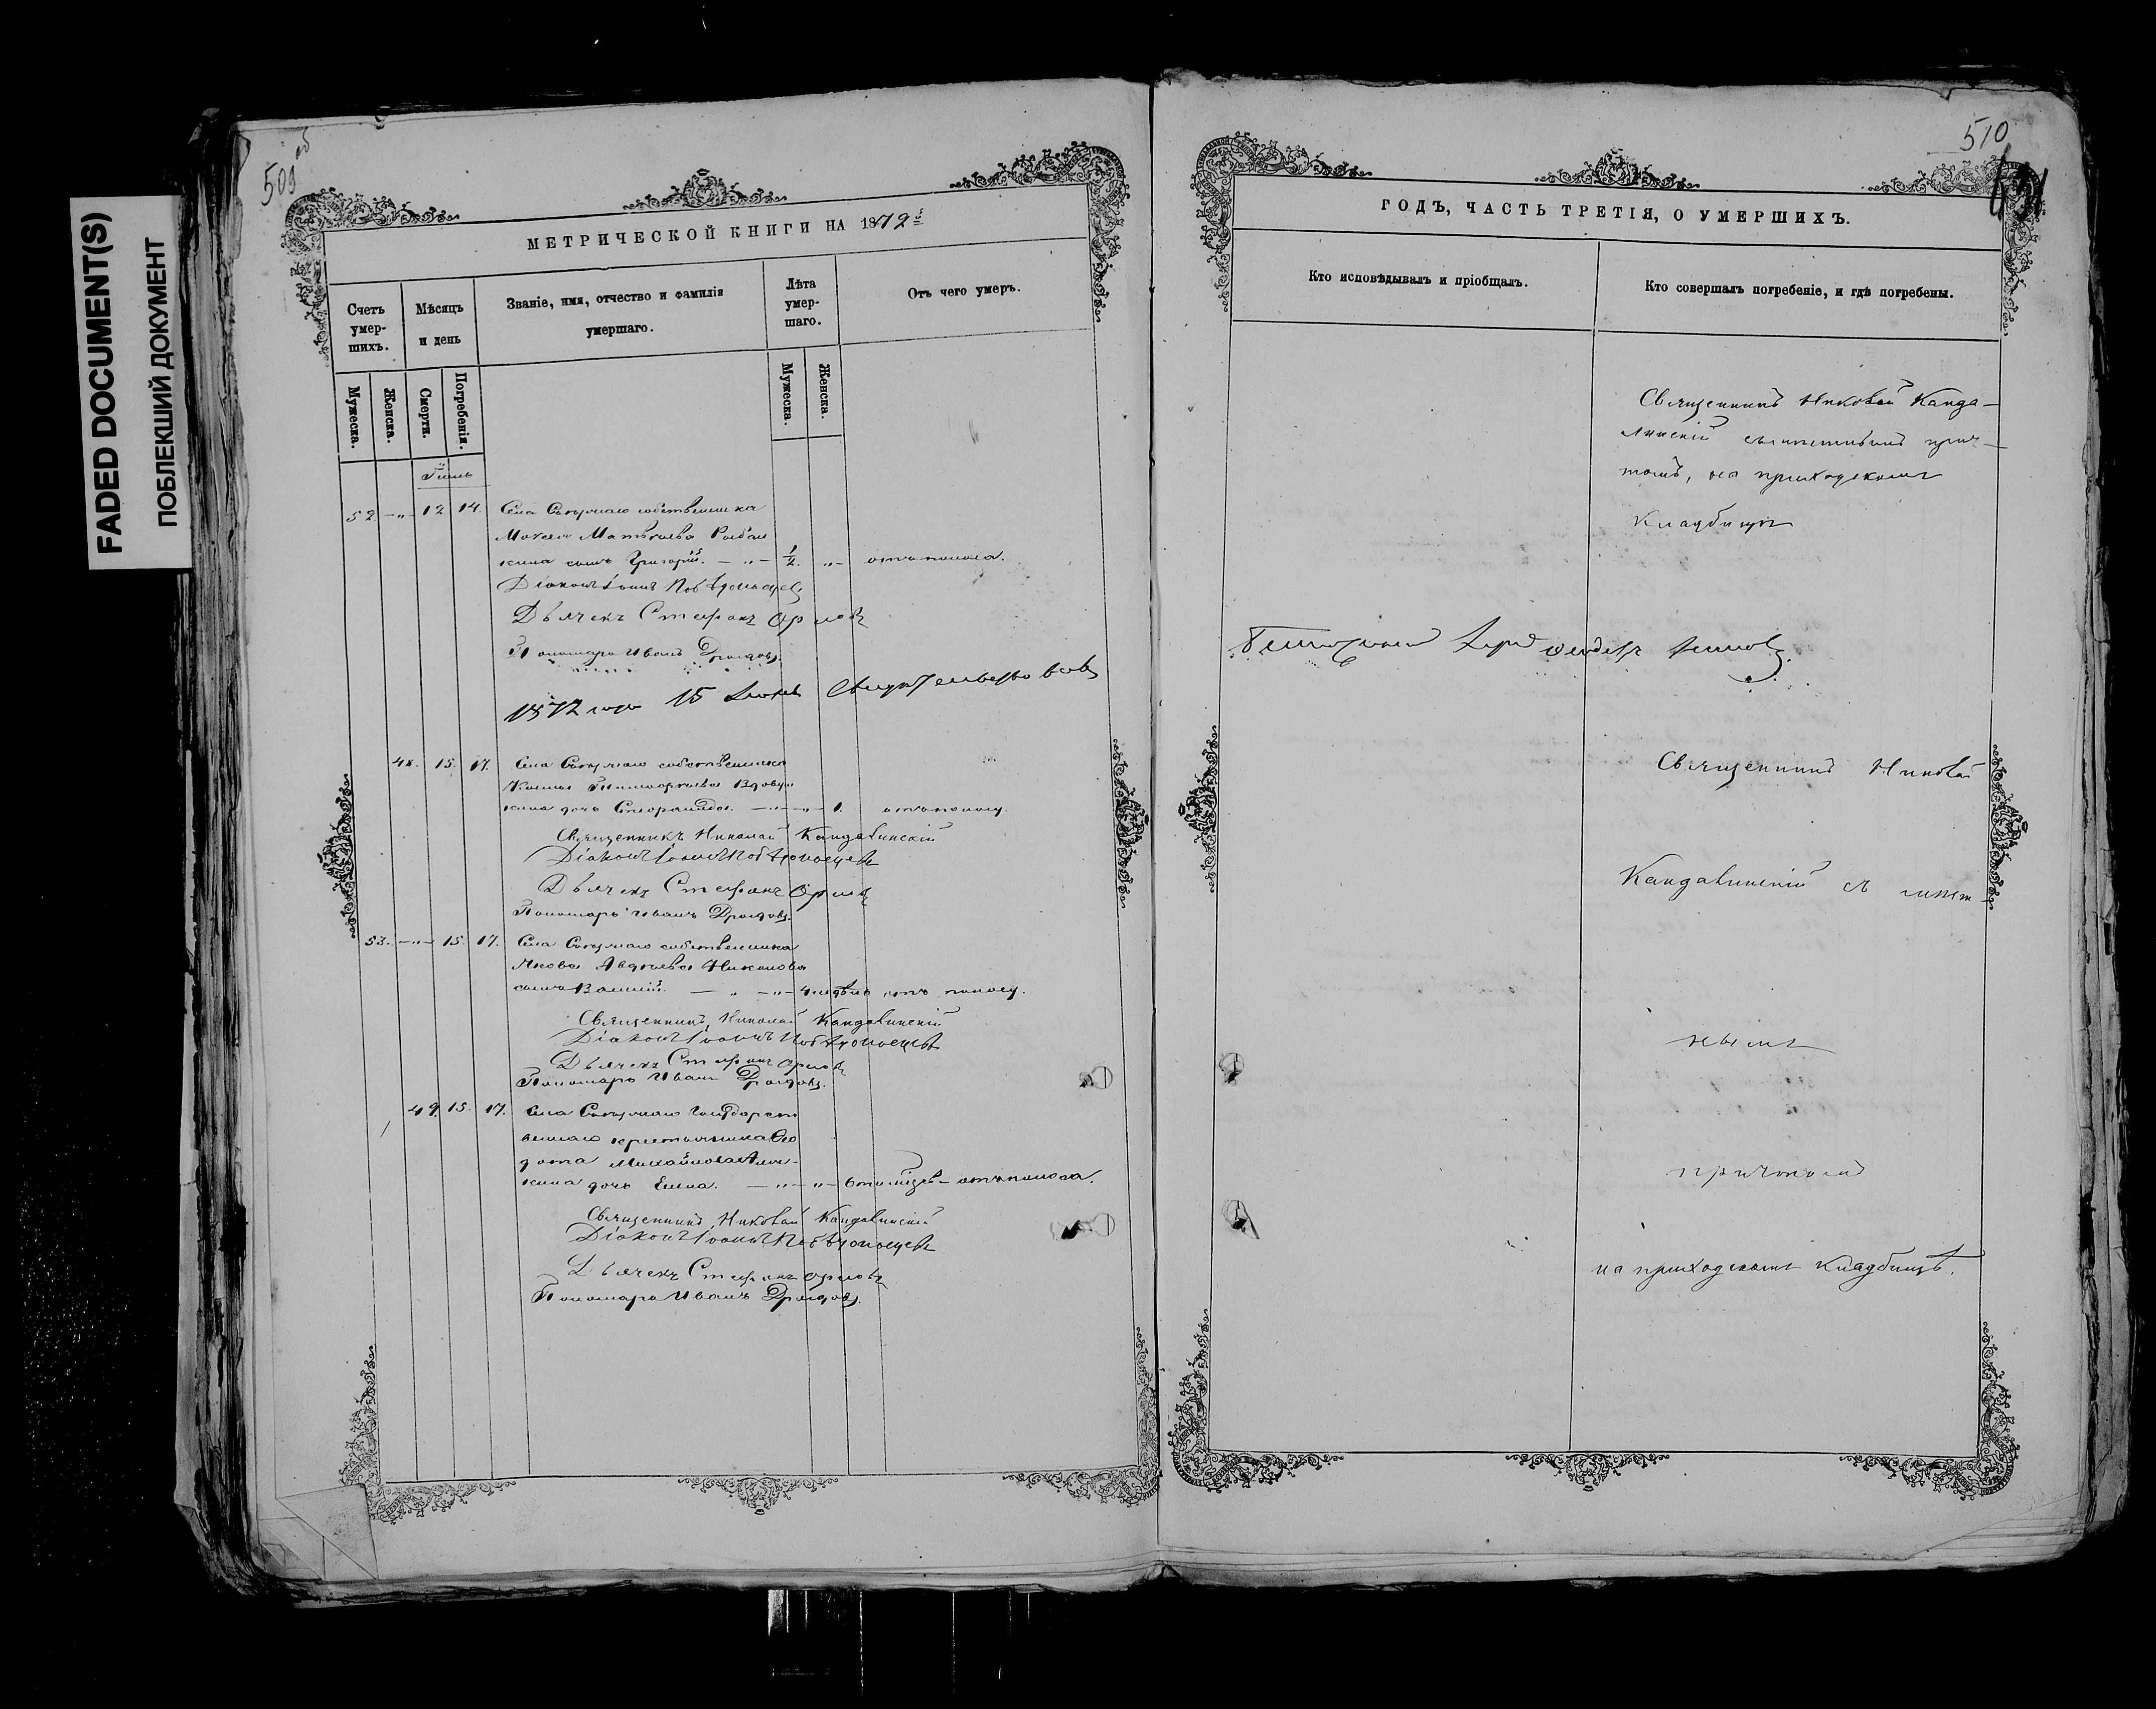 FADED DOCUMENT(S)
ПОБЛЕКШИЙ ДОКУМЕНТ
509 об
МЕТРИЧЕСКОЙ КНИГИ НА 1872й
Счетъ умер-шихъ.
Мѣсяцъ и день
Званіе, имя, отчество и фамилія умершаго.
Лѣта умер-шаго.
Отъ чего умеръ.
Мужеска.
Женска.
Смерти.
Погребенія.
Мужеска.
Женска.
52 12 14. Села собственника
Матвѣева
кина сынъ Григорій. 1/2. отъ поноса.
Діаконъ Іоаннъ Побѣдоносцевъ
Дьячекъ Стефанъ Орловъ
Пономарь Иванъ Дроздовъ.
1872 года 15 Свидѣтельствовалъ
48. 15. 17. Села собственника
Тимофеева Вдови
кина дочь 1. отъ поносу.
Священникъ Николай Кандалинскій
Діаконъ Іоаннъ Побѣдоносцевъ
Дьячекъ Стефанъ Орловъ
Пономарь Иванъ Дроздовъ.
53. 15. 17. Села собственника
Якова Авдѣева Никонова
сынъ 4 недѣль отъ поносу.
Священникъ Николай Кандалинскій
Діаконъ Іоаннъ Побѣдоносцевъ
Дьячекъ Стефанъ Орловъ
Пономарь Иванъ Дроздовъ.
49. 15. 17. Села Государст
веннаго крестьянина Ѳео
дота Михайлова
кина дочь Елена. отъ поноса.
Священникъ Николай Кандалинскій
Діаконъ Іоаннъ Побѣдоносцевъ
Дьячекъ Стефанъ Орловъ
Пономарь Иванъ Дроздовъ.
510
ГОДЪ, ЧАСТЬ ТРЕТІЯ, О УМЕРШИХЪ.
Кто исповѣдывалъ и пріобщалъ.
Кто совершалъ погребеніе, и гдѣ погребены.
Священникъ Николай Канда-
линскій прич-
томъ, на приходскомъ
кладбищѣ
Священникъ Николай
Кандалинскій съ мѣст
нымъ
причтомъ
на приходскомъ кладбищѣ.